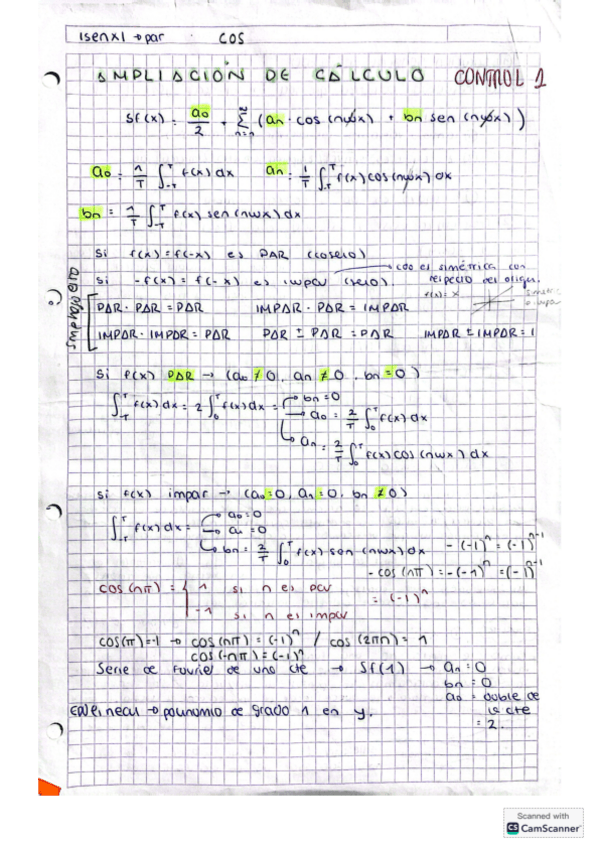 |senx| → par cos
AMPLIACIÓN DE CÁLCULO CONTROL 1
Sf(x) = a0/2 + Σ (an · cos (nωx) + bn sen (nωx))
a0 = 1/T ∫_-T^T f(x) dx an = 1/T ∫_-T^T f(x) cos (nωx) dx
bn = 1/T ∫_-T^T f(x) sen (nωx) dx
Si f(x) = f(-x) es PAR (coseno)
Si -f(x) = f(-x) es impar (seno). → cdo es simétrica con respecto del origen.
f(x) = x
PAR · PAR = PAR IMPAR · PAR = IMPAR
IMPAR · IMPAR = PAR PAR ± PAR = PAR IMPAR ± IMPAR = I
Si f(x) PAR → (a0 ≠ 0, an ≠ 0, bn = 0)
∫_-T^T f(x) dx = 2 ∫_0^T f(x) dx = → bn = 0
→ a0 = 2/T ∫_0^T f(x) dx
→ an = 2/T ∫_0^T f(x) cos (nωx) dx
si f(x) impar → (a0 = 0, an = 0, bn ≠ 0)
∫_-T^T f(x) dx = → a0 = 0
→ an = 0
→ bn = 2/T ∫_0^T f(x) sen (nωx) dx
- (-1)^n = (-1)^n-1
- cos (nπ) = -(-1)^n = (-1)^n-1
cos (nπ) = { 1 si n es par
-1 si n es impar
= (-1)^n
cos(π) = -1 → cos (nπ) = (-1)^n / cos (2πn) = 1
cos (-nπ) = (-1)^n
Serie de Fourier de una cte → Sf(1) → an = 0
bn = 0
a0 = doble de la cte = 2.
EDO lineal → polinomio de grado 1 en y.
Scanned with
CS CamScanner